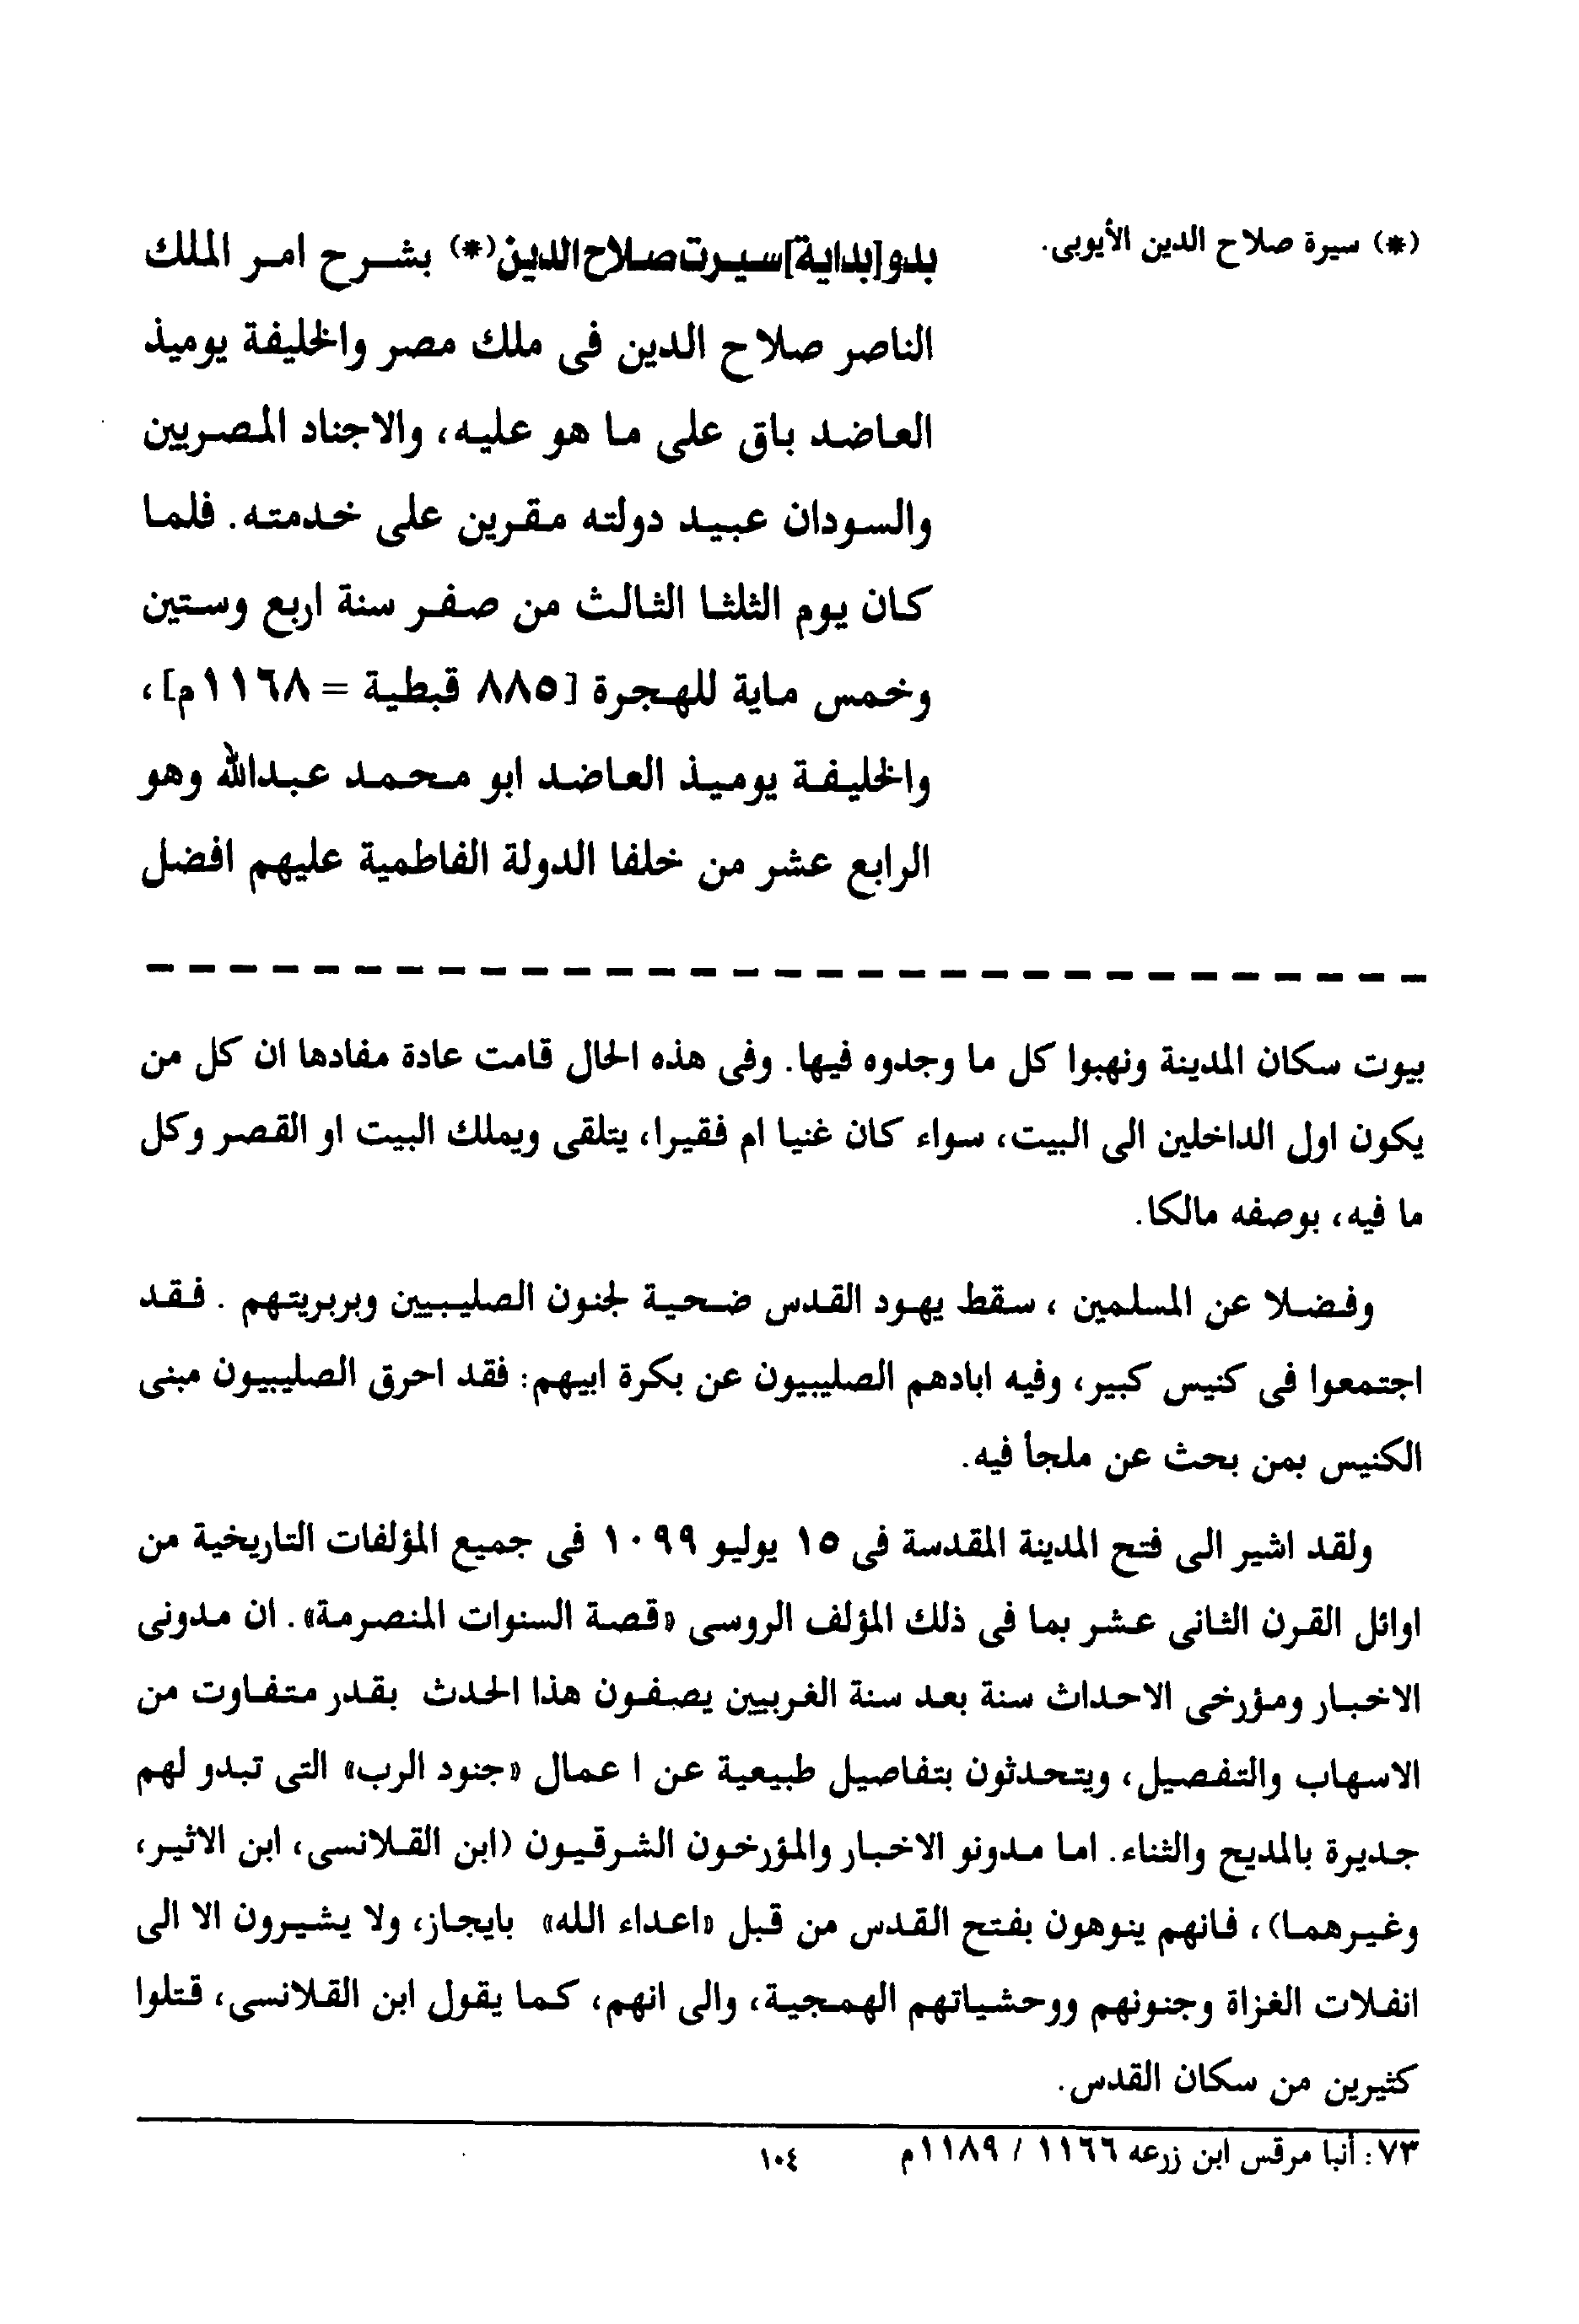 (*) سيرة صلاح الدين الأيوبى.
بدو[بداية]سيرت صلاح الدين(*) بشرح امر الملك
الناصر صلاح الدين فى ملك مصر والخليفة يوميذ
العاضد باق على ما هو عليه، والاجناد المصريين
والسودان عبيد دولته مقرين على خدمته. فلما
كان يوم الثلثا الثالث من صفر سنة اربع وستين
وخمس ماية للهجرة [٨٨٥ قبطية = ١١٦٨م]،
والخليفة يوميذ العاضد ابو محمد عبدالله وهو
الرابع عشر من خلفا الدولة الفاطمية عليهم افضل
بيوت سكان المدينة ونهبوا كل ما وجدوه فيها. وفى هذه الحال قامت عادة مفادها ان كل من
يكون اول الداخلين الى البيت، سواء كان غنيا ام فقيرا، يتلقى ويملك البيت او القصر وكل
ما فيه، بوصفه مالكا.
وفضلا عن المسلمين ، سقط يهود القدس ضحية لجنون الصليبيين وبربريتهم . فقد
اجتمعوا فى كنيس كبير، وفيه ابادهم الصليبيون عن بكرة ابيهم: فقد احرق الصليبيون مبنى
الكنيس بمن بحث عن ملجأ فيه.
ولقد اشير الى فتح المدينة المقدسة فى ١٥ يوليو ١٠٩٩ فى جميع المؤلفات التاريخية من
اوائل القرن الثانى عشر بما فى ذلك المؤلف الروسى «قصة السنوات المنصرمة». ان مدونى
الاخبار ومؤرخى الاحداث سنة بعد سنة الغربيين يصفون هذا الحدث بقدر متفاوت من
الاسهاب والتفصيل، ويتحدثون بتفاصيل طبيعية عن ا عمال «جنود الرب» التى تبدو لهم
جديرة بالمديح والثناء. اما مدونو الاخبار والمؤرخون الشرقيون (ابن القلانسى، ابن الاثير،
وغيرهما)، فانهم ينوهون بفتح القدس من قبل «اعداء الله» بايجاز، ولا يشيرون الا الى
انفلات الغزاة وجنونهم ووحشياتهم الهمجية، والى انهم، كما يقول ابن القلانسى، قتلوا
كثيرين من سكان القدس.
٧٣: أنبا مرقس ابن زرعه ١١٦٦ / ١١٨٩م
١٠٤